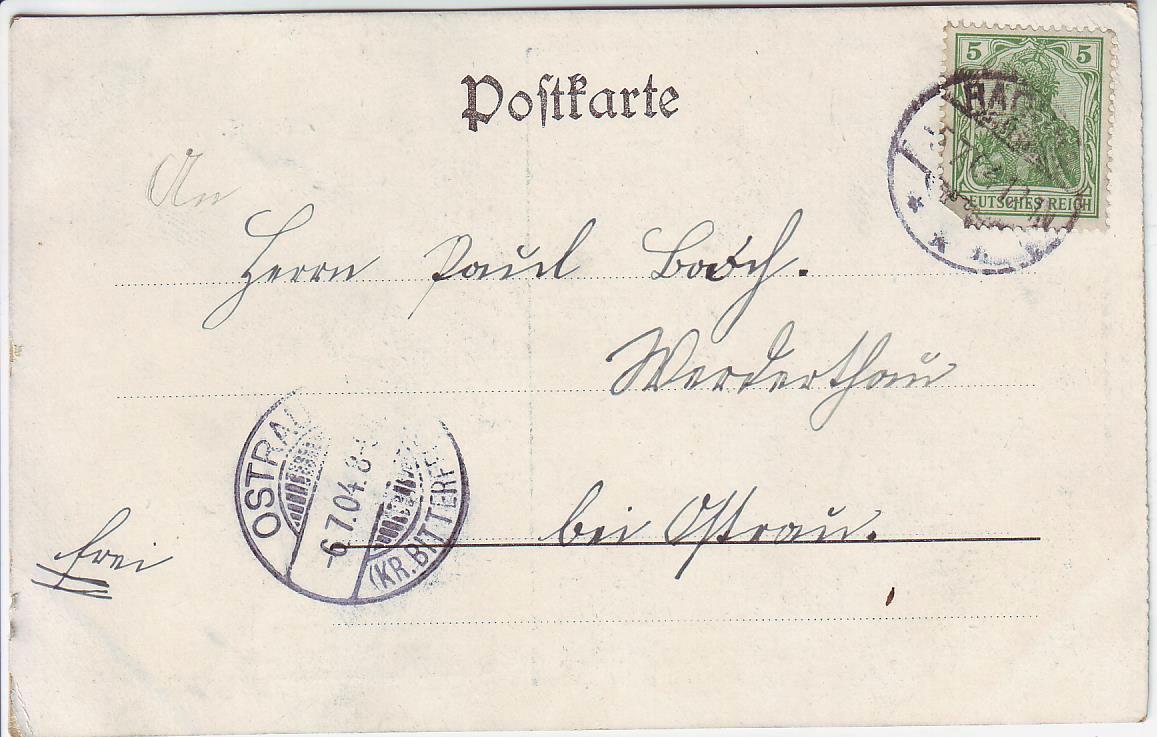 Postkarte
5 5
DEUTSCHES REICH
An
Herrn Paul
Werderthau
bei Ostrau.
frei
OSTRAU
-6.7.04.8-
(KR. BITTERF